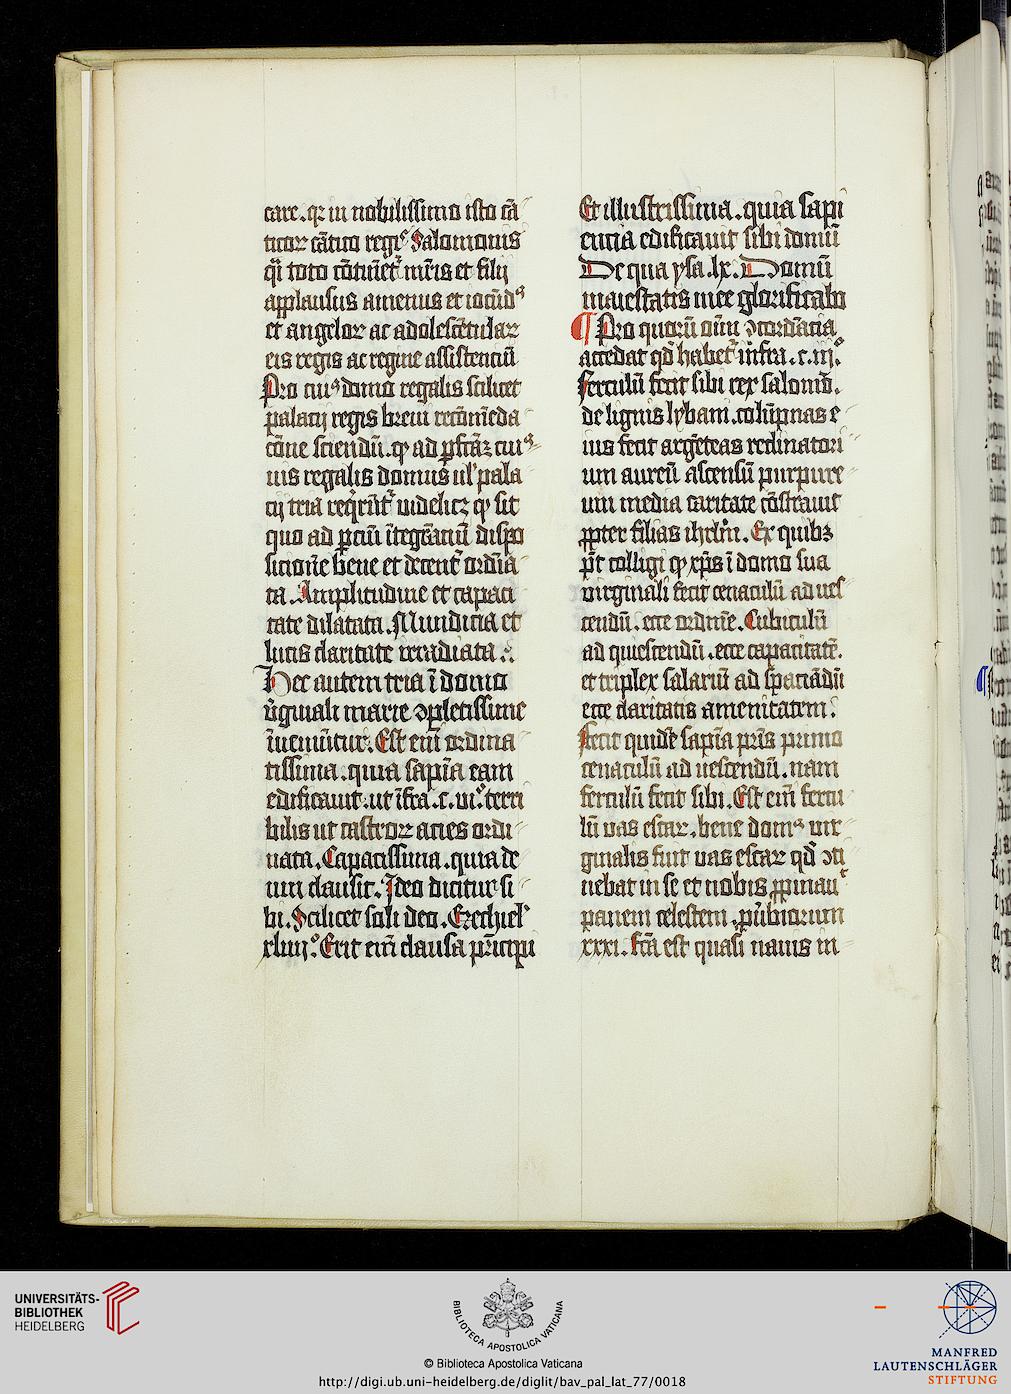 care. qr in nobilissimo isto cā
ticoꝝ cātico regꝭ Salomonis
qͥ toto cōtinet᷑ mr̄is et filij
applausus amenus et iocūdꝰ
et angeloꝝ ac adolescētulaꝝ
eis regis ac regine assistenciū
Pro cuiꝰ domo regalis scilicet
palacij regis breui recōmēda
cōne sciendū. ꝙ ad ꝑfcāꝫ cuiꝰ
uis regalis domus ul' pala
cij tria reqͥrūt᷑ uidelicꝫ ꝙ sit
quo ad ꝑciū ītegͣnciū dispo
sicione bene et decent᷑ ordīa
ta. Amplitudine et capaci
tate dilatata. Mundicia et
lucis claritate irradiata.
Hec autem tria ī domo
uͥginali marie ꝯpletissime
īueniūtur. Est eni͂ ordina
tissima. quia sapīa eam
edificauit. ut īfra. c. vi.° terri
bilis ut castroꝝ acies ordi
nata. Capacissima. quia de
um clausit. Ideo dicitur si
bi. Scilicet soli deo. Ezechiel'
xliiij.° Erit eni͂ clausa pͥncipi
Et illustrissima. quia sapi
encia edificauit sibi domū
De qua ysa. lx. Domū
maiestatis mee glorificabo
¶ Pro quorū oīm ꝯcordācia
accedat qd̄ habet᷑ infra. c. iij.°
ferculū fecit sibi rex salomō.
de lignis lybani. colūpnas e
ius fecit argēteas reclinatori
um aureū ascensū purpure
um media caritate cōstrauit
ꝓpter filias ihrlm̄. Ex quibꝫ
pͣt colligi ꝙ xp̄s ī domo sua
virginali fecit cenaculū ad ues
cendū. ecce ordinē. Cubiculū
ad quiescendū. ecce capacitatē.
et triplex salariū ad spaciādū
ecce claritatis amenitatem.
Fecit quidē sapīa pr̄is primo
cenaculū ad uescendū. nam
ferculū fecit sibi. Est eni͂ fercu
lū uas escaꝝ. bene domꝰ uir
ginalis fuit uas escaꝝ qd̄ ꝯti
nebat in se et nobis ꝓpinauͭ
panem celestem. puͥbiorum
xxxi. Fcā est quasi nauis in
UNIVERSITÄTS-
BIBLIOTHEK
HEIDELBERG
BIBLIOTECA APOSTOLICA VATICANA
© Biblioteca Apostolica Vaticana
http://digi.ub.uni-heidelberg.de/diglit/bav_pal_lat_77/0018
MANFRED
LAUTENSCHLÄGER
STIFTUNG